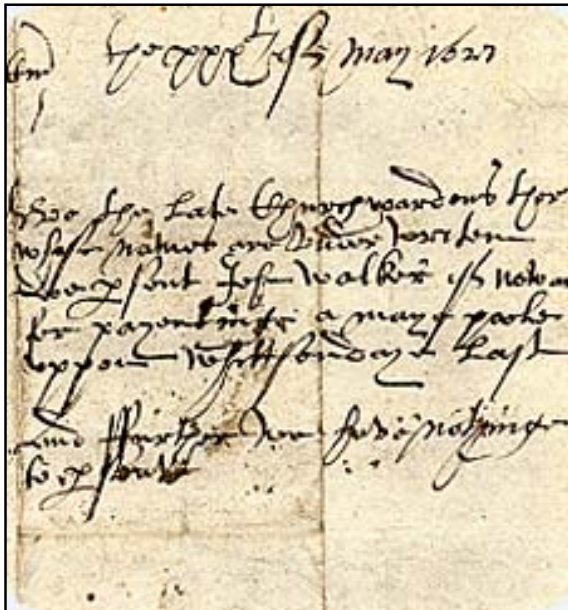 the xxxth of may 1627
We the late Churchwardens ther
whose names are under written
we psent John walker of
for payentinge a maye poole
uppon whittsondaye Last
and ffurther we have nothinge
to psent